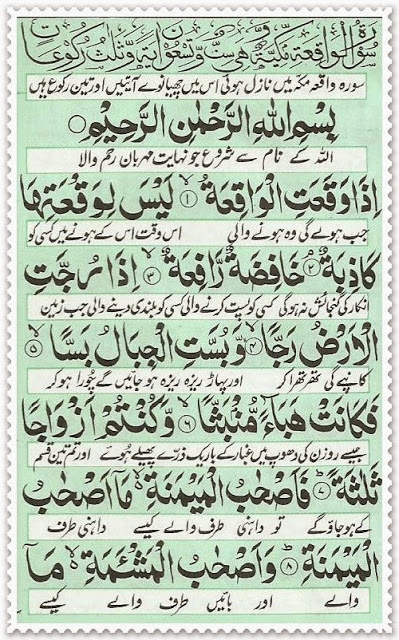 سُوْرَةُ الْوَاقِعَةِ مَكِّيَّةٌ وَّهِيَ سِتٌّ وَّتِسْعُوْنَ اٰيَةً وَّثَلٰثُ رُكُوْعَاتٍ
سورہ واقعہ مکہ میں نازل ہوئی اس میں چھیانوے آیتیں اور تین رکوع ہیں
بِسْمِ اللّٰهِ الرَّحْمٰنِ الرَّحِيْمِ
اللہ کے نام سے شروع جو نہایت مہربان رحم والا
اِذَا وَقَعَتِ الْوَاقِعَةُ ۙ﴿۱﴾ لَيْسَ لِوَقْعَتِهَا
جب ہولے گی وہ ہونے والی اس وقت اس کے ہونے میں کسی کو
كَاذِبَةٌ ۘ﴿۲﴾ خَافِضَةٌ رَّافِعَةٌ ۙ﴿۳﴾ اِذَا رُجَّتِ
انکار کی گنجائش نہ ہوگی کسی کو پست کرنے والی کسی کو بلندی دینے والی جب زمین
الْاَرْضُ رَجًّا ۙ﴿۴﴾ وَّبُسَّتِ الْجِبَالُ بَسًّا ۙ﴿۵﴾
کانپے گی تھرتھرا کر اور پہاڑ ریزہ ریزہ ہو جائیں گے چُورا ہو کر
فَكَانَتْ هَبَآءً مُّنْۢبَثًّا ۙ﴿۶﴾ وَّكُنْتُمْ اَزْوَاجًا
جیسے روزن کی دھوپ میں غبار کے باریک ذرّے پھیلے ہوئے اور تم تین قسم
ثَلٰثَةً ؕ﴿۷﴾ فَاَصْحٰبُ الْمَيْمَنَةِ ۙ مَاۤ اَصْحٰبُ
کے ہو جاؤ گے تو داہنی طرف والے کیسے داہنی طرف
الْمَيْمَنَةِ ؕ﴿۸﴾ وَاَصْحٰبُ الْمَشْـَٔمَةِ ۙ مَاۤ
والے اور بائیں طرف والے کیسے